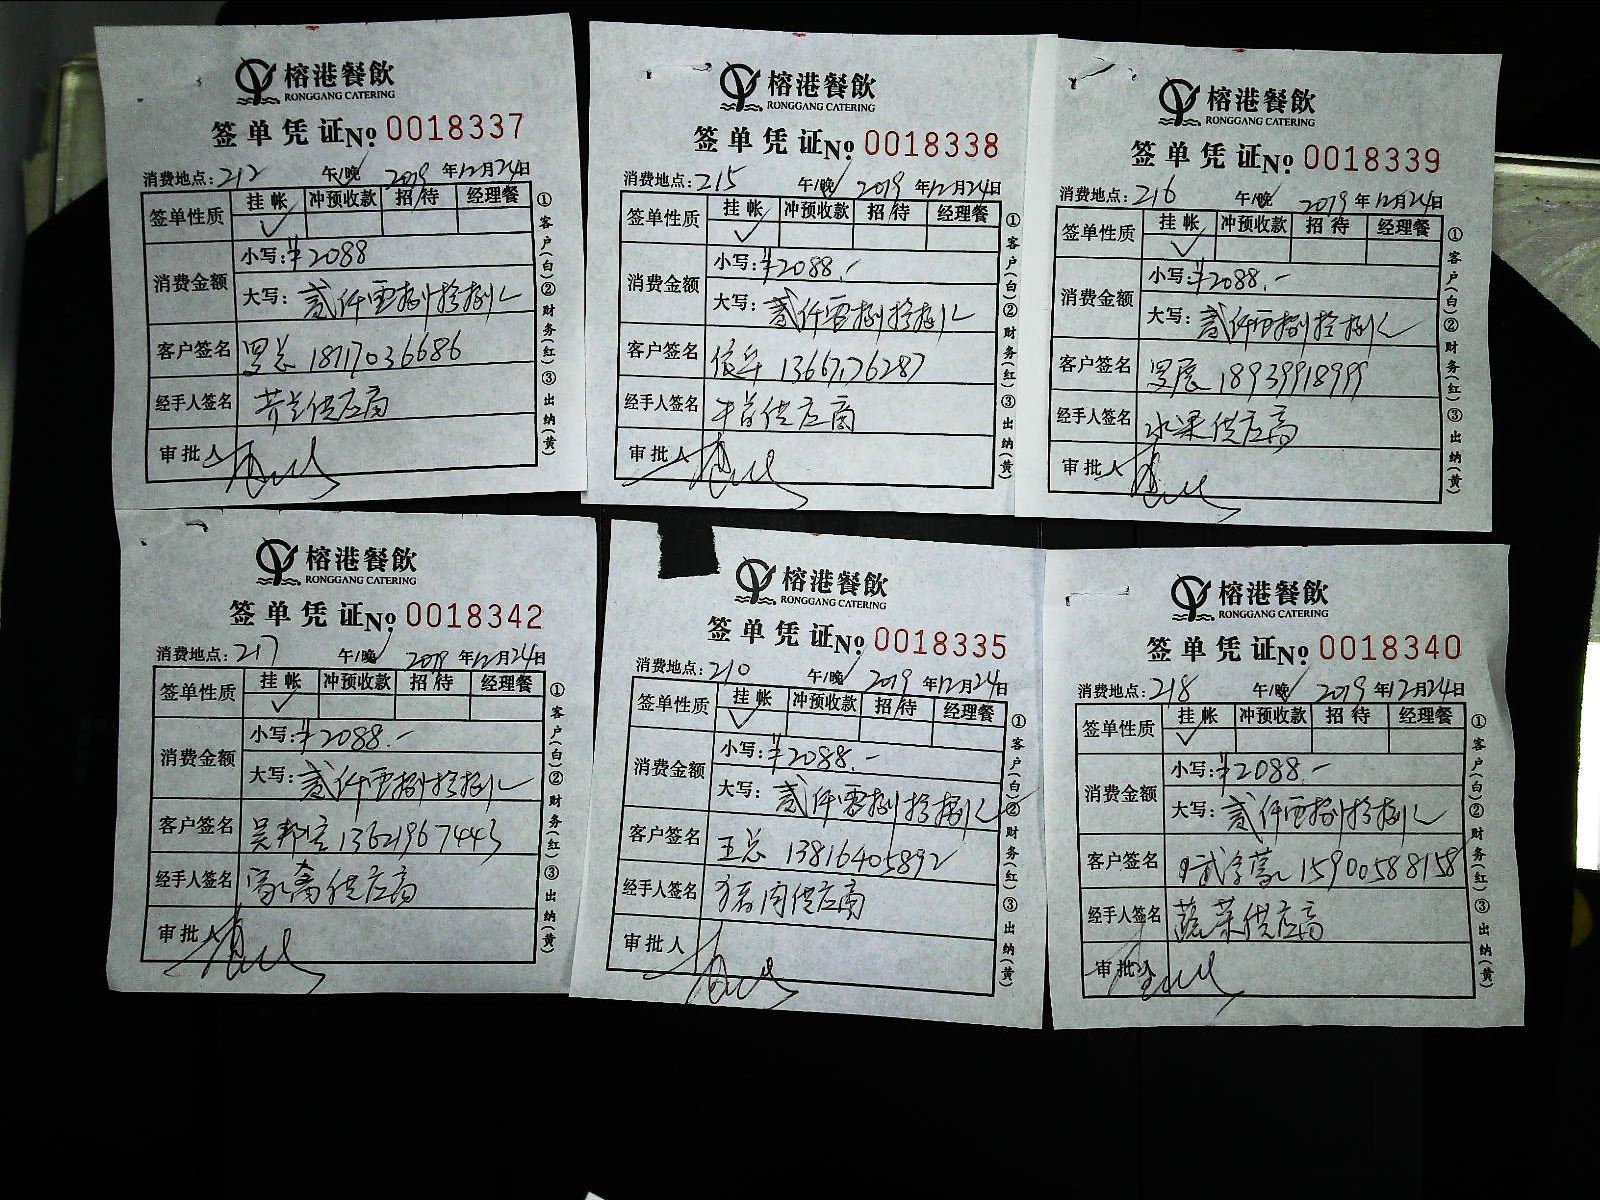 榕港餐飲
RONGGANG CATERING
签单凭证 No. 0018337
消费地点：212 午/晚 2019年12月24日
签单性质 挂帐 冲预收款 招待 经理餐
✓
消费金额
小写：¥2088
大写：贰仟零捌拾捌元
客户签名 罗总 18717036686
经手人签名 供应商
审批人
①客户(白)②财务(红)③出纳(黄)
榕港餐飲
RONGGANG CATERING
签单凭证 No. 0018338
消费地点：215 午/晚 2019年12月24日
签单性质 挂帐 冲预收款 招待 经理餐
✓
消费金额
小写：¥2088.-
大写：贰仟零捌拾捌元
客户签名
经手人签名 供应商
审批人
①客户(白)②财务(红)③出纳(黄)
榕港餐飲
RONGGANG CATERING
签单凭证 No. 0018339
消费地点：216 午/晚 2019年12月24日
签单性质 挂帐 冲预收款 招待 经理餐
✓
消费金额
小写：¥2088.-
大写：贰仟零捌拾捌元
客户签名 罗 18939918999
经手人签名 水果供应商
审批人
①客户(白)②财务(红)③出纳(黄)
榕港餐飲
RONGGANG CATERING
签单凭证 No. 0018342
消费地点：217 午/晚 2019年12月24日
签单性质 挂帐 冲预收款 招待 经理餐
✓
消费金额
小写：¥2088.-
大写：贰仟零捌拾捌元
客户签名 吴邦 13621967443
经手人签名 家禽供应商
审批人
①客户(白)②财务(红)③出纳(黄)
榕港餐飲
RONGGANG CATERING
签单凭证 No. 0018335
消费地点：210 午/晚 2019年12月24日
签单性质 挂帐 冲预收款 招待 经理餐
✓
消费金额
小写：¥2088.-
大写：贰仟零捌拾捌元
客户签名 王总 13816405892
经手人签名 猪肉供应商
审批人
①客户(白)②财务(红)③出纳(黄)
榕港餐飲
RONGGANG CATERING
签单凭证 No. 0018340
消费地点：218 午/晚 2019年12月24日
签单性质 挂帐 冲预收款 招待 经理餐
✓
消费金额
小写：¥2088.-
大写：贰仟零捌拾捌元
客户签名 15900588158
经手人签名 蔬菜供应商
审批人
①客户(白)②财务(红)③出纳(黄)